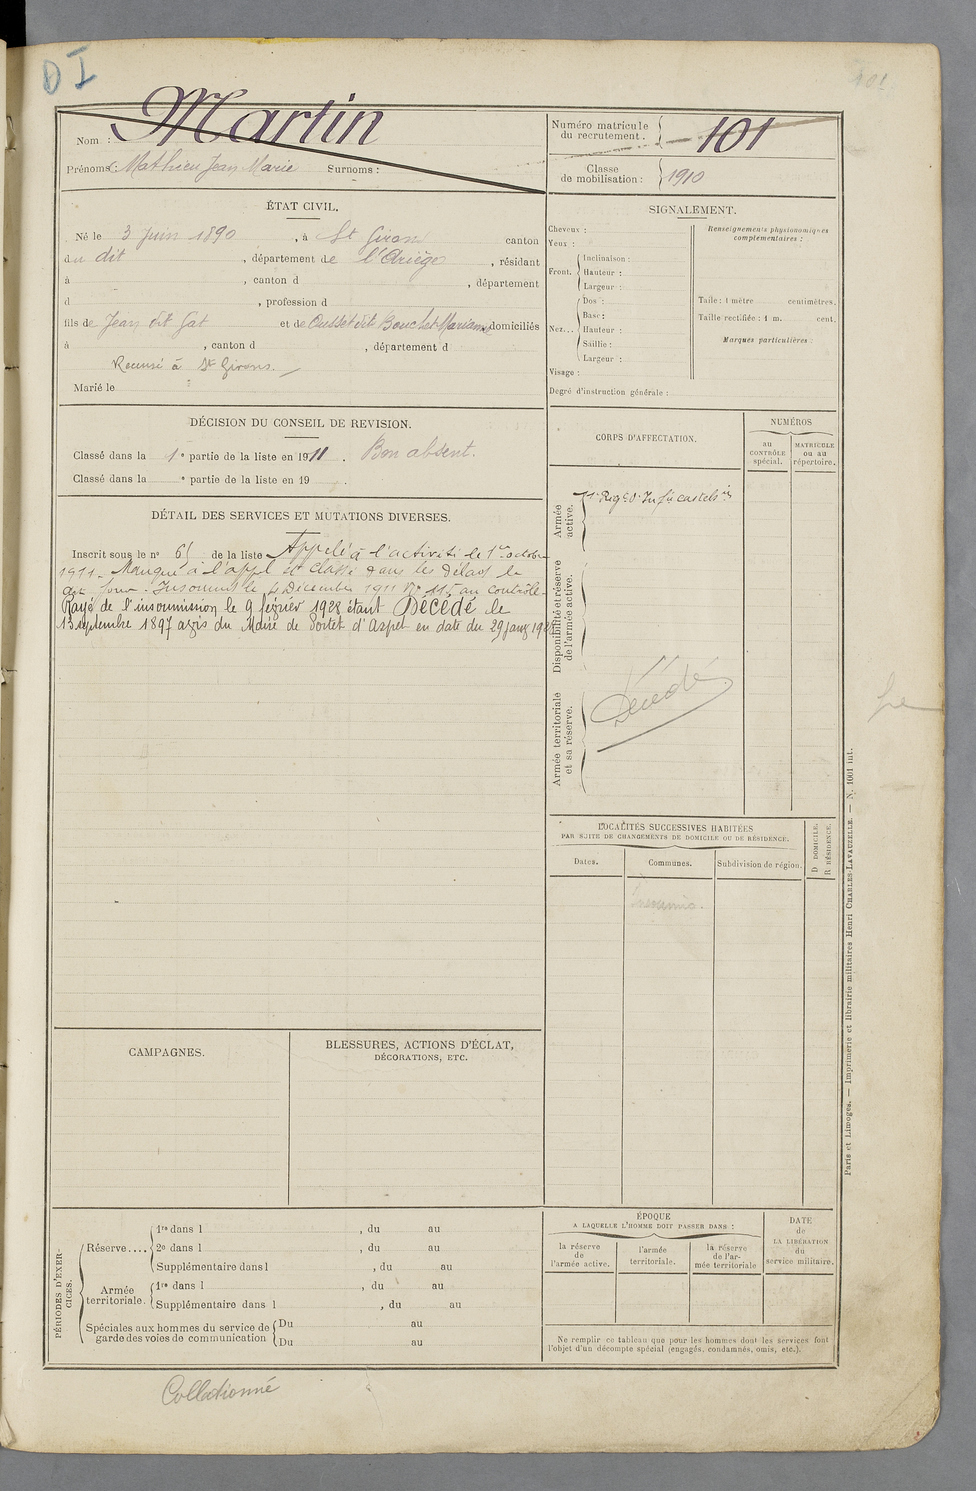 D I
101
Nom : Martin
Prénoms : Mathieu Jean Marie Surnoms :
Numéro matricule du recrutement. 101
Classe de mobilisation : 1910
ÉTAT CIVIL.
Né le 3 Juin 1890, à St Girons canton
du dit, département de l'Ariège, résidant
à , canton d , département
d , profession d
fils de Jean dit Gat et de Ousset dit Bouchet Marianne domiciliés
à , canton d , département d
Recensé à St Girons.
Marié le
SIGNALEMENT.
Cheveux :
Yeux :
Front. Inclinaison :
Hauteur :
Largeur :
Nez... Dos :
Base :
Hauteur :
Saillie :
Largeur :
Visage :
Renseignements physionomiques complémentaires :
Taille : 1 mètre centimètres.
Taille rectifiée : 1 m. cent.
Marques particulières :
Degré d'instruction générale :
DÉCISION DU CONSEIL DE REVISION.
Classé dans la 1e partie de la liste en 1911. Bon absent.
Classé dans la e partie de la liste en 19 .
DÉTAIL DES SERVICES ET MUTATIONS DIVERSES.
Inscrit sous le no 61 de la liste Appelé à l'activité le 1er octobre
1911. Manqué à l'appel de classe dans les délais le
dit jour. Insoumis le 4 Décembre 1911 No 115 au contrôle
Rayé de l'insoumission le 9 février 1928 étant Décédé le
13 septembre 1897 avis du Maire de Portet d'Aspet en date du 29 janv 1928
CORPS D'AFFECTATION.
NUMÉROS
au CONTRÔLE spécial.
MATRICULE ou au répertoire.
Armée active.
Disponibilité et réserve de l'armée active.
Armée territoriale et sa réserve.
Décédé
LOCALITÉS SUCCESSIVES HABITÉES
PAR SUITE DE CHANGEMENTS DE DOMICILE OU DE RÉSIDENCE.
Dates.
Communes.
Subdivision de région.
D DOMICILE.
R RÉSIDENCE.
Insoumis.
CAMPAGNES.
BLESSURES, ACTIONS D'ÉCLAT,
DÉCORATIONS, ETC.
PÉRIODES D'EXERCICES.
Réserve.... 1re dans l , du au
2e dans l , du au
Supplémentaire dans l , du au
Armée territoriale. 1re dans l , du au
Supplémentaire dans l , du au
Spéciales aux hommes du service de garde des voies de communication Du au
Du au
ÉPOQUE
A LAQUELLE L'HOMME DOIT PASSER DANS :
la réserve de l'armée active.
l'armée territoriale.
la réserve de l'armée territoriale
DATE de LA LIBÉRATION du service militaire.
Ne remplir ce tableau que pour les hommes dont les services font
l'objet d'un décompte spécial (engagés, condamnés, omis, etc.).
Paris et Limoges. — Imprimerie et librairie militaires Henri CHARLES-LAVAUZELLE. — N. 1001 int.
Collationné